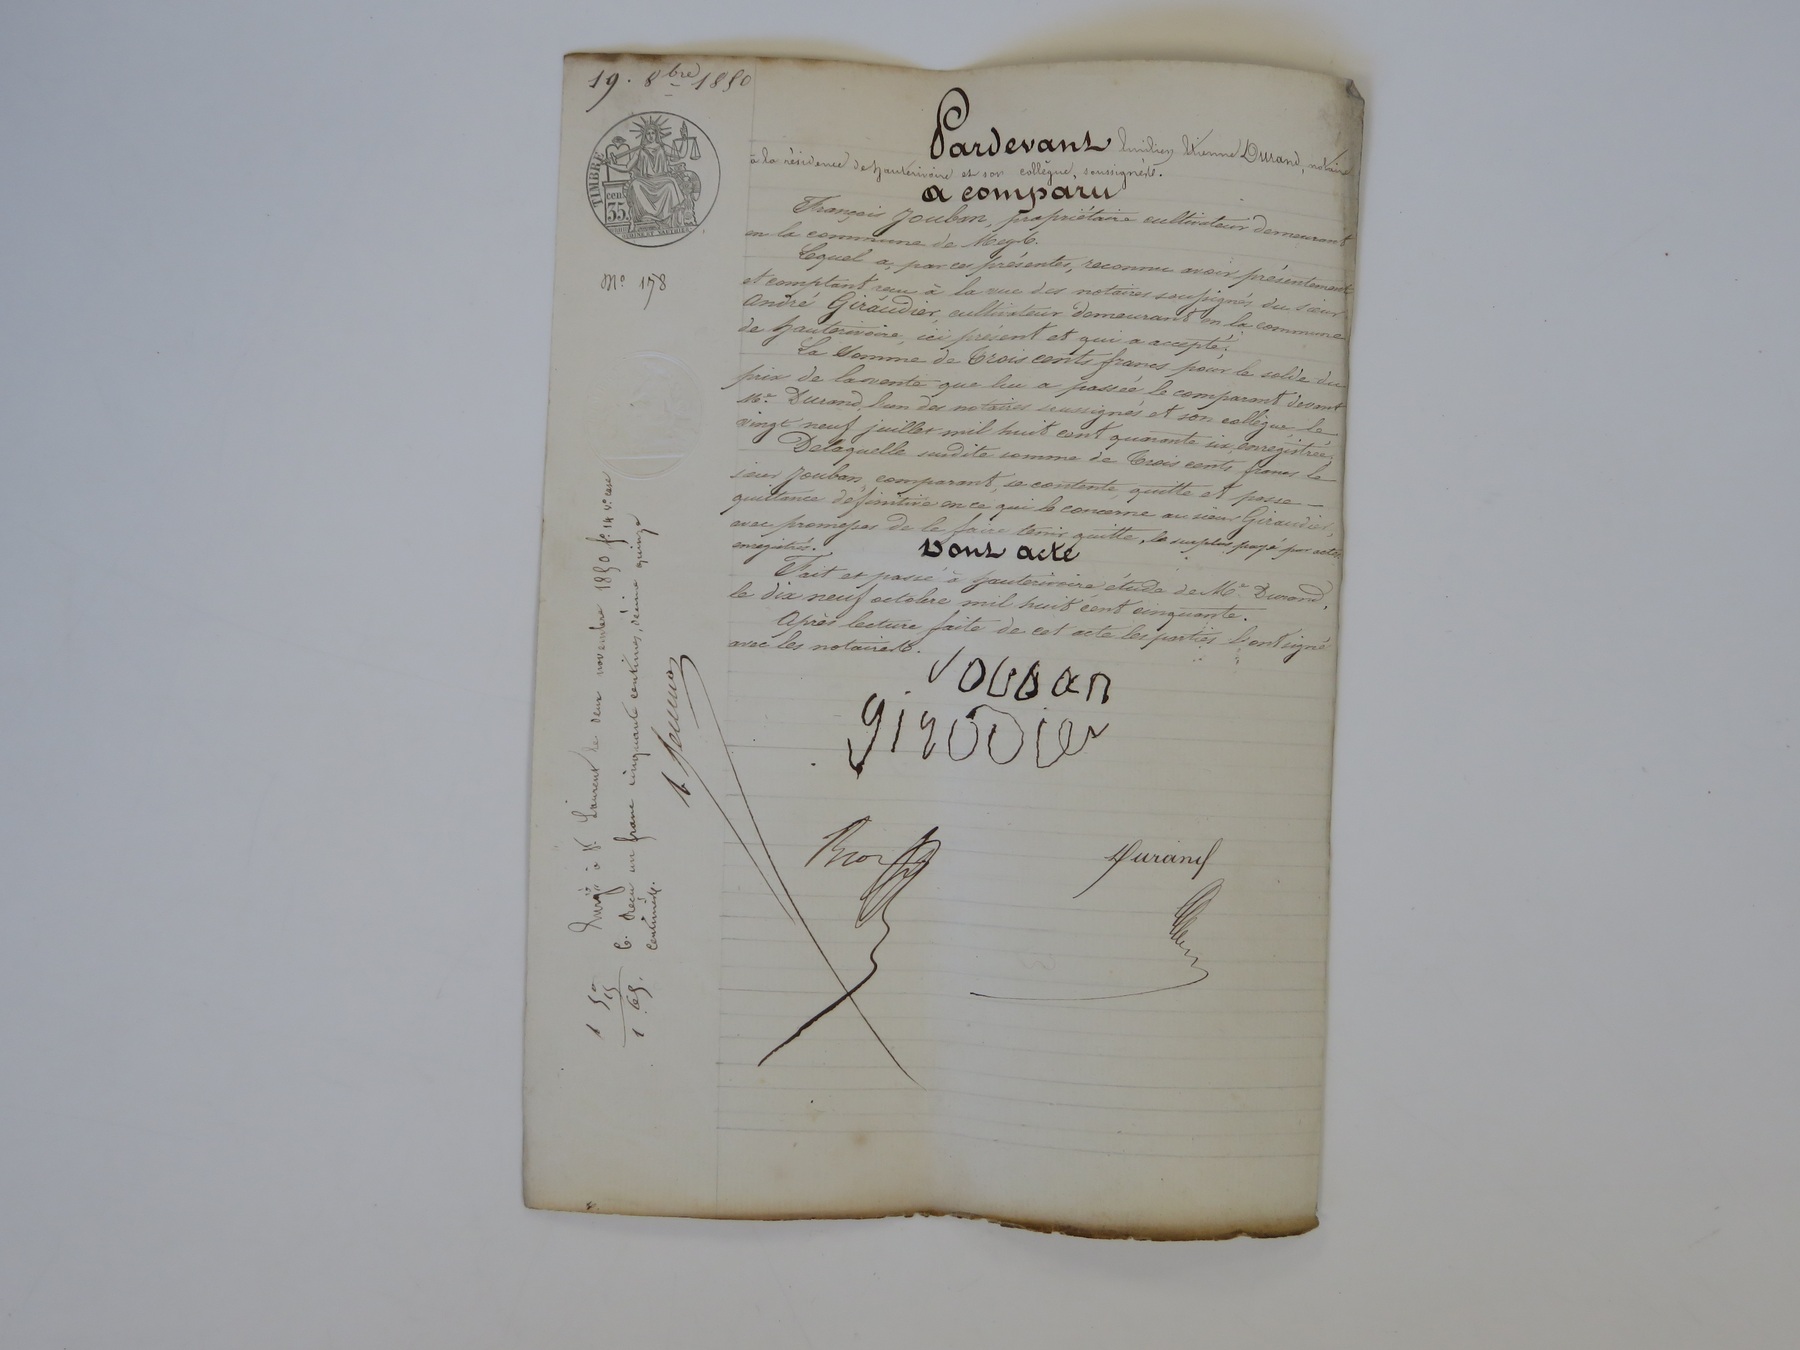 19. 8bre 1850
TIMBRE
cen
35
No 178
Pardevant Etienne Durand, notaire
à la résidence de hauterivoire et son collègue, soussignés.
a comparu
François Jouban, propriétaire cultivateur demeurant
en la commune de Meys.
Lequel a, par ces présentes, reconnu avoir présentement
et comptant reçu à la vue des notaires soussignés du sieur
André Giraudier, cultivateur demeurant en la commune
de hauterivoire, ici présent et qui a accepté:
La somme de Trois cents francs pour le solde du
prix de la vente que lui a passée le comparant devant
Me. Durand, l'un des notaires soussignés et son collègue le
vingt neuf juillet mil huit cent quarante six, enregistrée,
De laquelle susdite somme de Trois cents francs le
sieur Jouban, comparant, se contente, quitte et passe
quittance définitive en ce qui le concerne au sieur Giraudier,
avec promesses de le faire tenir quitte, le surplus payé par actes
enregistrés.
Dont acte
Fait et passé à hauterivoire, étude de Me. Durand,
le dix neuf octobre mil huit cent cinquante.
Après lecture faite de cet acte les parties l'ont signé
avec les notaires.
Jouban
girodier
Durand
à St. Laurent le deux novembre 1850 fo. 14 vo. case
6. Reçu un franc cinquante centimes, décime quinze
centimes.
1 50
15
1.65.